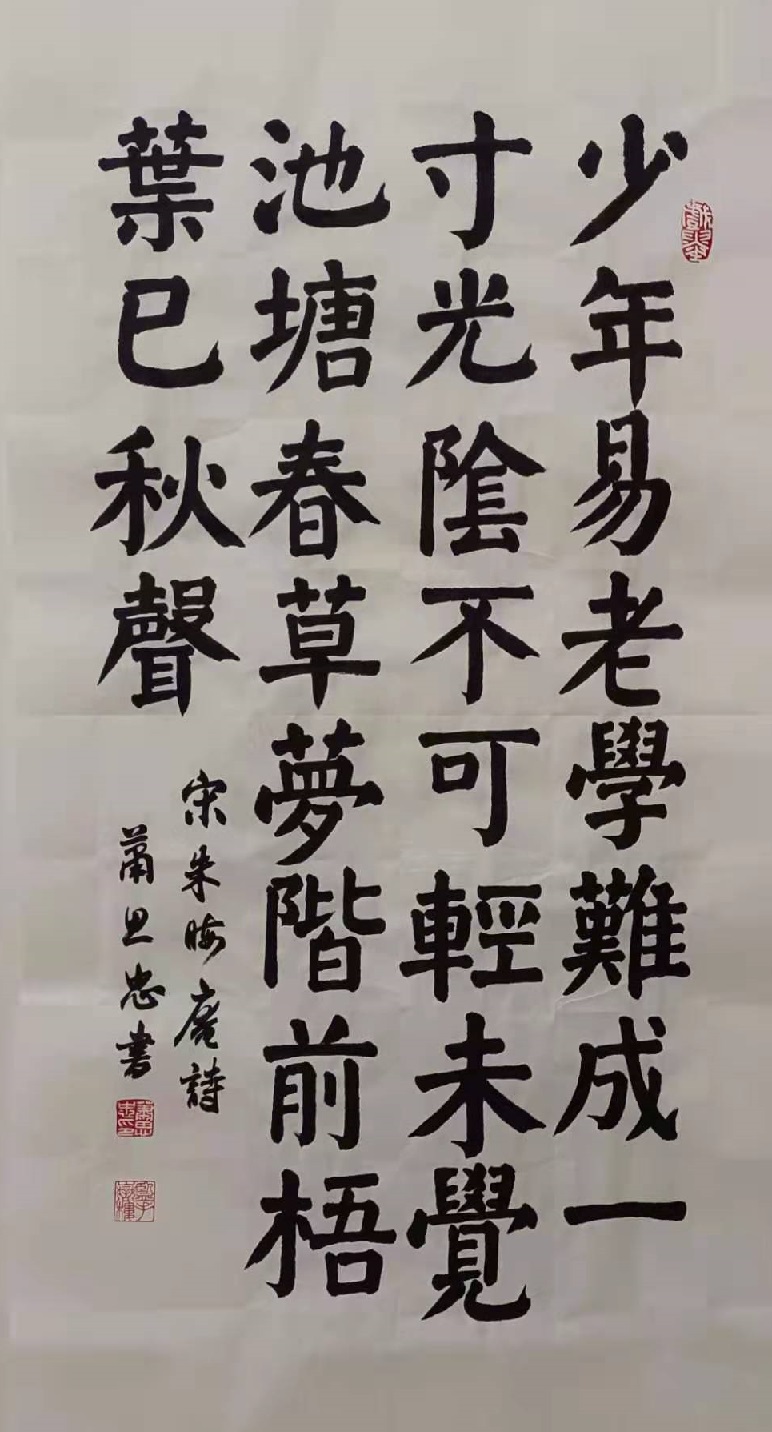 少年易老學難成一
寸光陰不可輕未覺
池塘春草夢階前梧
葉已秋聲
宋朱晦庵詩
蕭思忠書